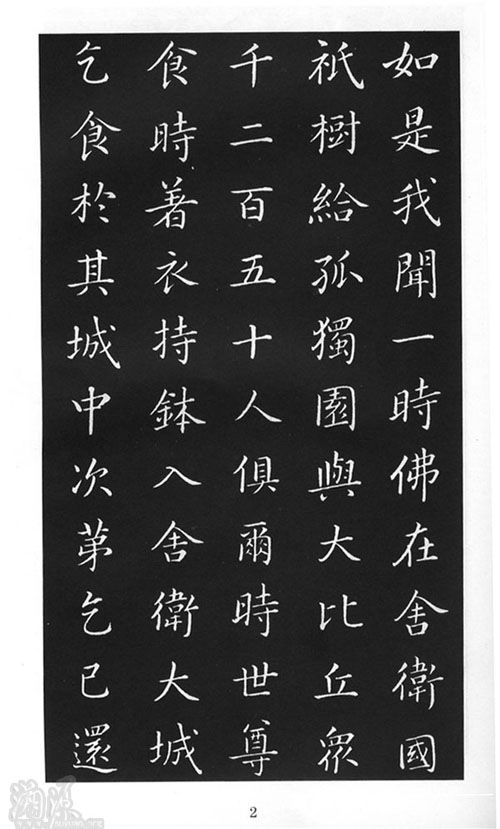 如是我聞一時佛在舍衛國
祇樹給孤獨園與大比丘眾
千二百五十人俱爾時世尊
食時著衣持鉢入舍衛大城
乞食於其城中次第乞已還
2